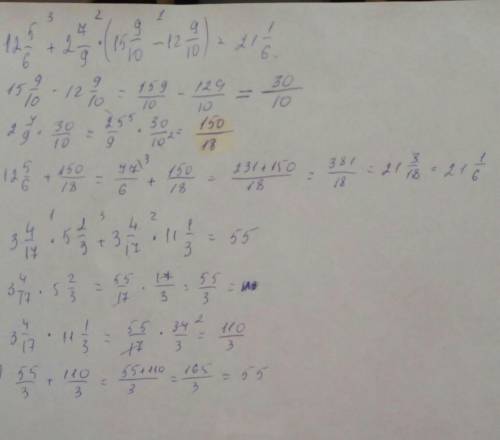 12 5/6 ³ + 2 7/9 ² · (15 9/10 ¹ - 12 9/10) = 21 1/6.
15 9/10 - 12 9/10 = 159/10 - 129/10 = 30/10
2 7/9 · 30/10 = 25⁵/9 · 30/10₂ = 150/18
12 5/6 + 150/18 = 77⁾³/6 + 150/18 = 231+150/18 = 381/18 = 21 3/18 = 21 1/6
3 4/17 ¹ · 5 2/3 ³ + 3 4/17 ² · 11 1/3 = 55
3 4/17 · 5 2/3 = 55/17 · 17/3 = 55/3 =
3 4/17 · 11 1/3 = 55/17 · 34²/3 = 110/3
55/3 + 110/3 = 55+110/3 = 165/3 = 55